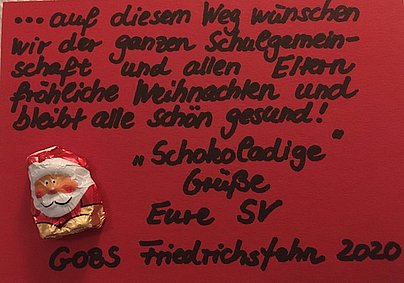 ... auf diesem Weg wünschen
wir der ganzen Schulgemein-
schaft und allen Eltern
fröhliche Weihnachten und
bleibt alle schön gesund!
„Schokoladige"
Grüße
Eure SV
GOBS Friedrichsfehn 2020